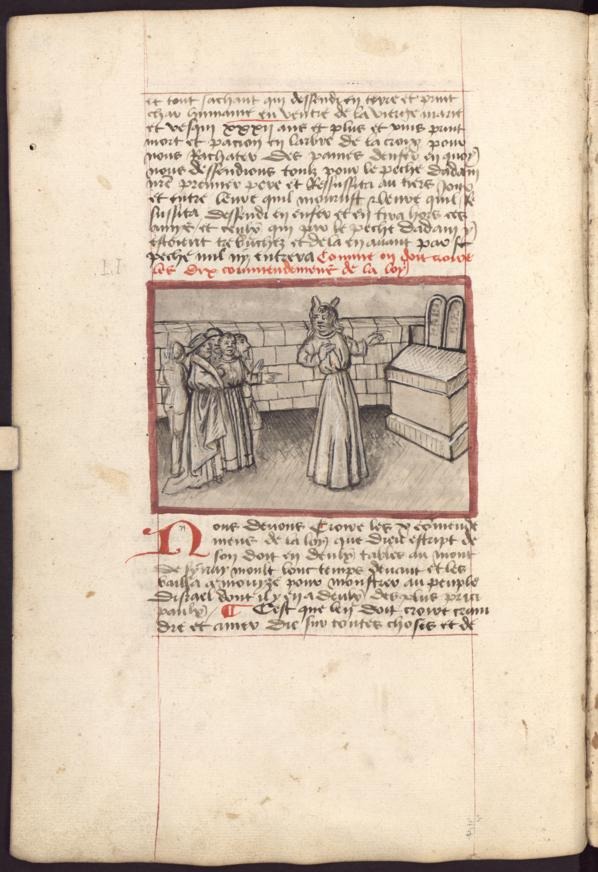 et tout sachant qui dessendi en terre et print
char humaine en ventre de la vierge marie
et vesqui xxxii ans et plus et puis print
mort et pacion en larbre de la croix pour
nous Rachater des paines denfer en quoy
nous dessendions touls pour le peche dadam
nre premier pere et Ressuscita au tiers Jour
et entre leure quil mourust leure quil Re
suscita dessendi en enfer et en tira hors ces
amis et ceulx qui par le peche dadam y
estoient trebuchez et de la en avant par se
peche nul ny entrera Comme on doit croire
les dix commendemens de la loy
Nous devons Croire les x comende
mens de la loy que dieu escript de
son doit en deulx tables au mont
de synay moult lonc temps devant et les
bailla a moize pour monstrer au peuple
disrael dont il y en a deulx des plus princi
paulx Cest que len doit croire crain
dre et amer die sur toutes choses et de